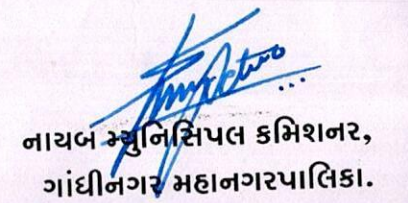 નાયબ મ્યુનિસિપલ કમિશનર,
ગાંધીનગર મહાનગરપાલિકા.